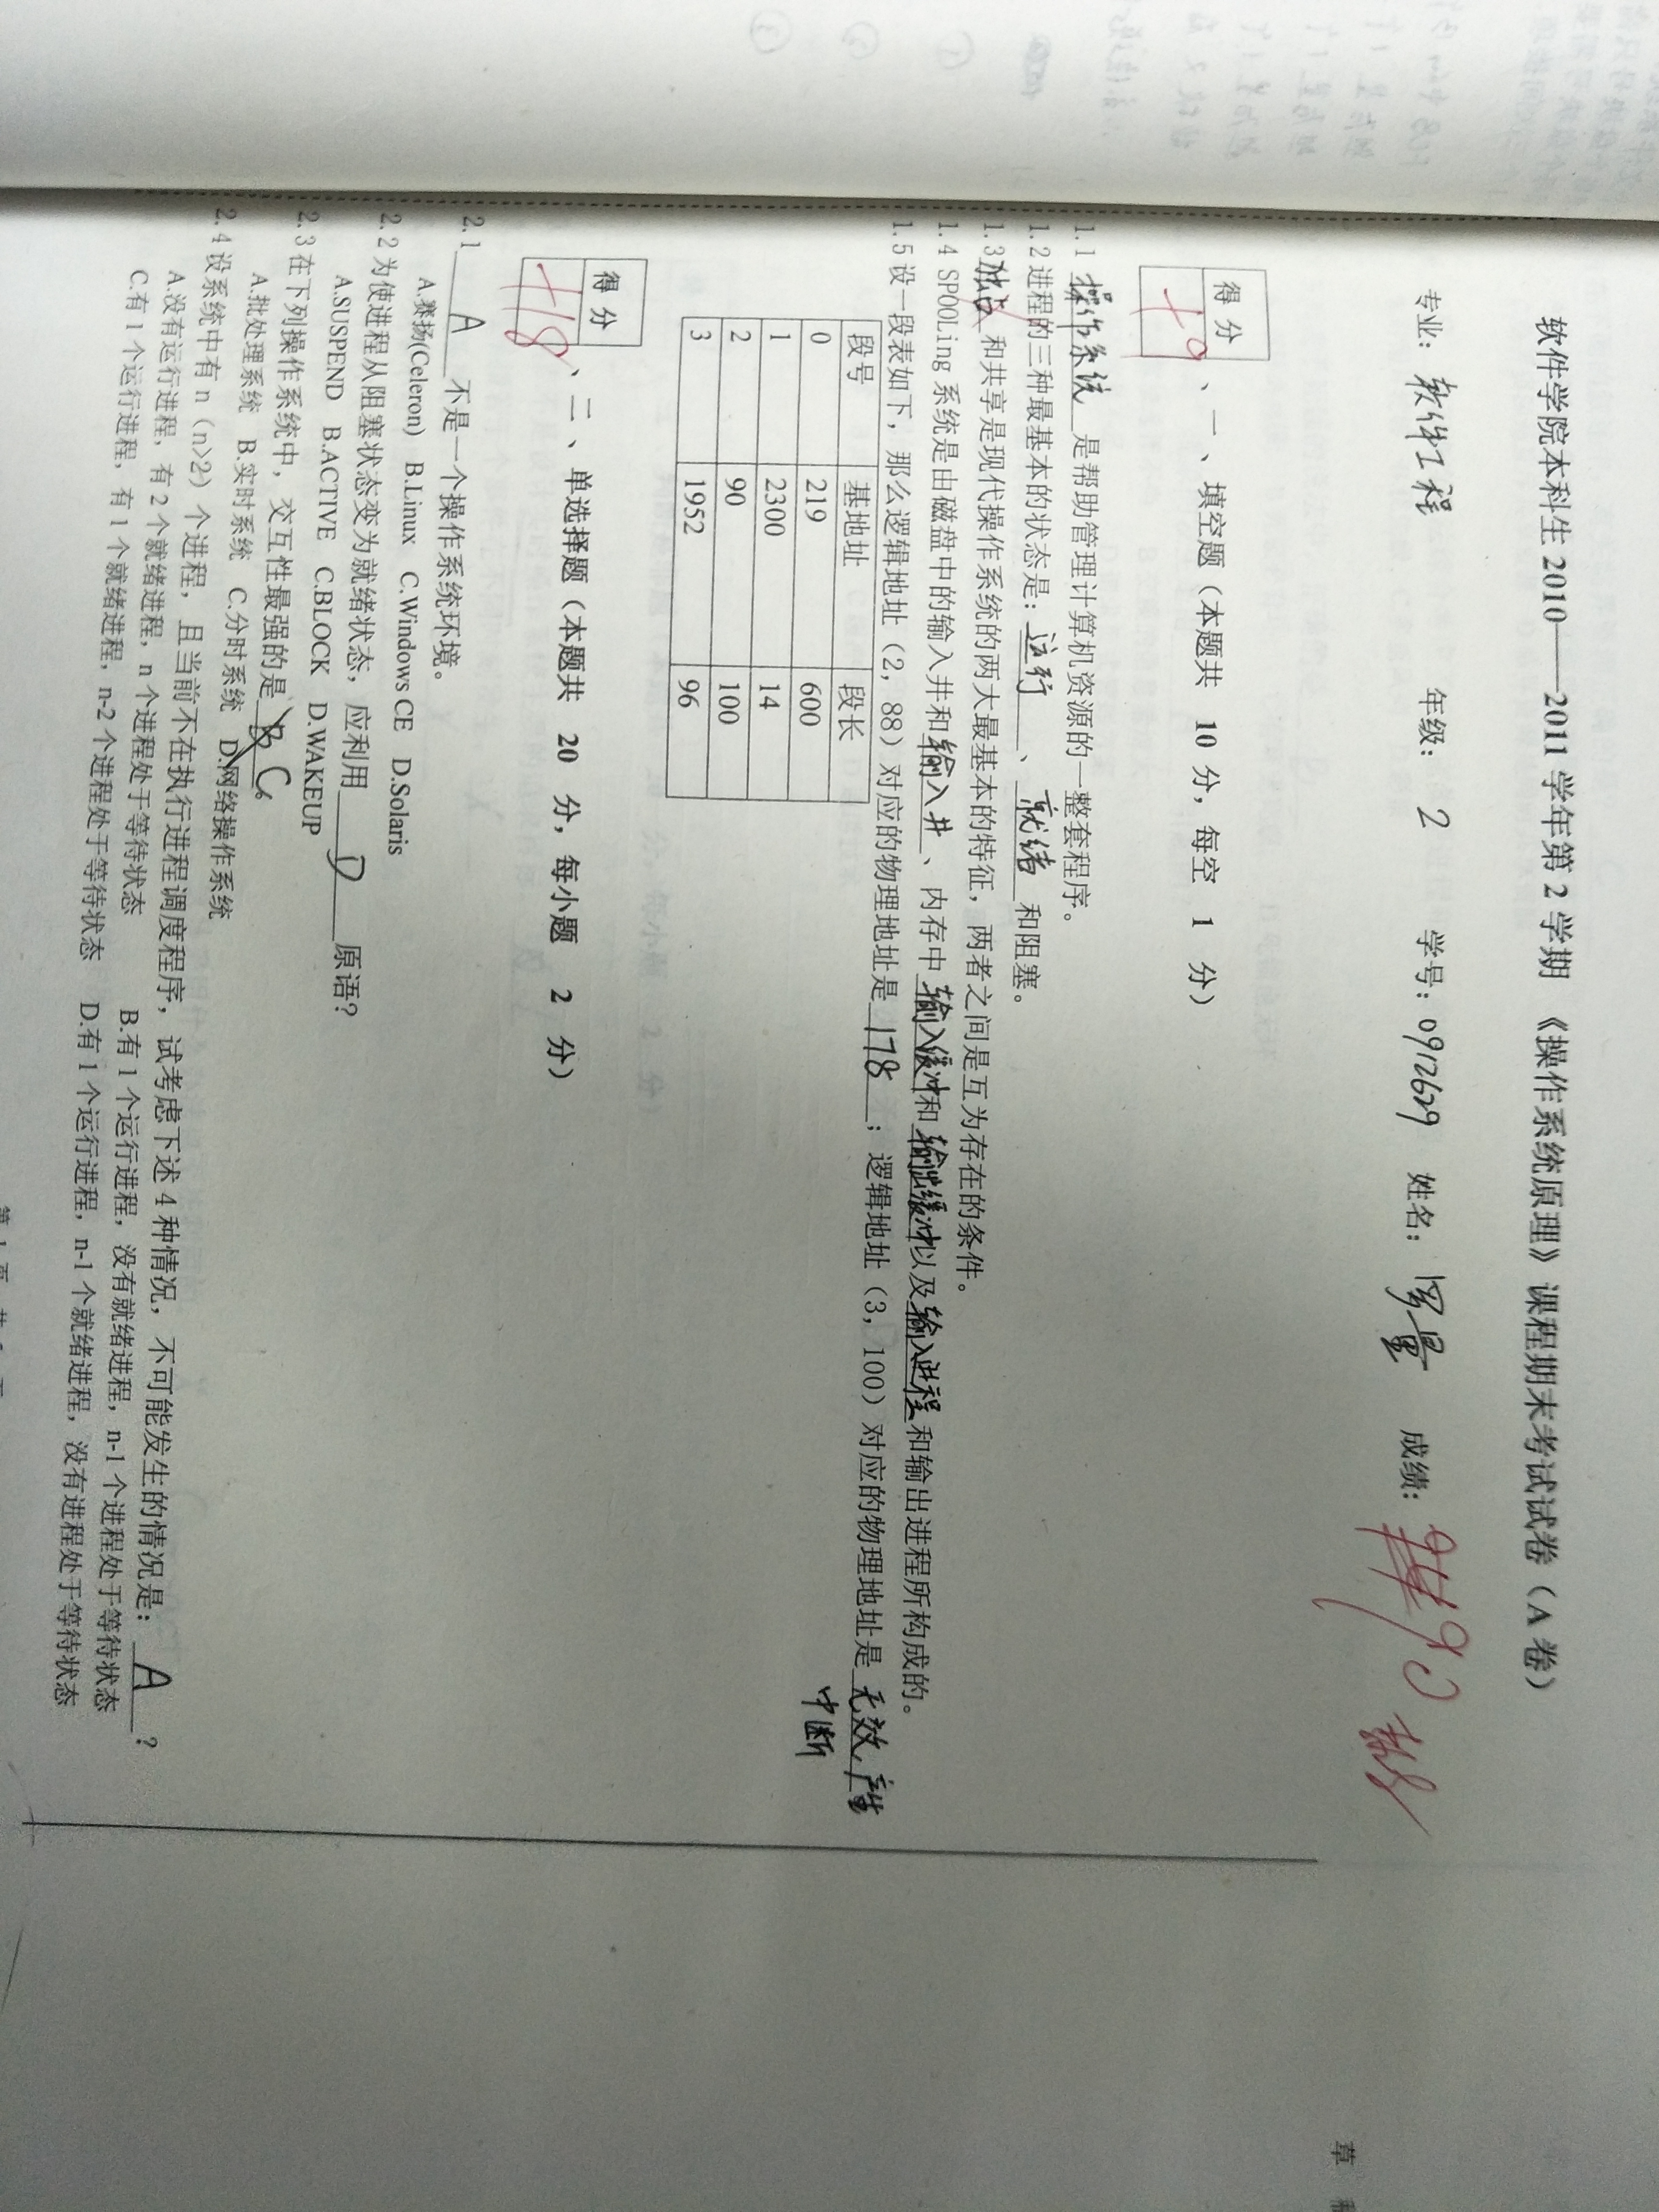 软件学院本科生 2010——2011 学年第 2 学期 《操作系统原理》课程期末考试试卷（A 卷）
专业：软件工程 年级：2 学号：0912629 姓名：罗量 成绩：90
草
得 分
+9
、一 、填空题（本题共 10 分，每空 1 分）
1.1 操作系统 是帮助管理计算机资源的一整套程序。
1.2 进程的三种最基本的状态是：运行 、就绪 和阻塞。
1.3 独占 和共享是现代操作系统的两大最基本的特征，两者之间是互为存在的条件。
1.4 SPOOLing 系统是由磁盘中的输入井和输入井 、内存中 输入缓冲和 输出缓冲以及输入进程 和输出进程所构成的。
1.5 设一段表如下，那么逻辑地址（2，88）对应的物理地址是 178 ；逻辑地址（3，100）对应的物理地址是 无效，产生
中断
段号 基地址 段长
0 219 600
1 2300 14
2 90 100
3 1952 96
得 分
+18
、二 、单选择题（本题共 20 分，每小题 2 分）
2.1 A 不是一个操作系统环境。
A.赛扬(Celeron) B.Linux C.Windows CE D.Solaris
2.2 为使进程从阻塞状态变为就绪状态，应利用 D 原语？
A.SUSPEND B.ACTIVE C.BLOCK D.WAKEUP
2.3 在下列操作系统中，交互性最强的是 C。
A.批处理系统 B.实时系统 C.分时系统 D.网络操作系统
2.4 设系统中有 n（n>2）个进程，且当前不在执行进程调度程序，试考虑下述 4 种情况，不可能发生的情况是： A ？
A.没有运行进程，有 2 个就绪进程，n 个进程处于等待状态 B.有 1 个运行进程，没有就绪进程，n-1 个进程处于等待状态
C.有 1 个运行进程，有 1 个就绪进程，n-2 个进程处于等待状态 D.有 1 个运行进程，n-1 个就绪进程，没有进程处于等待状态